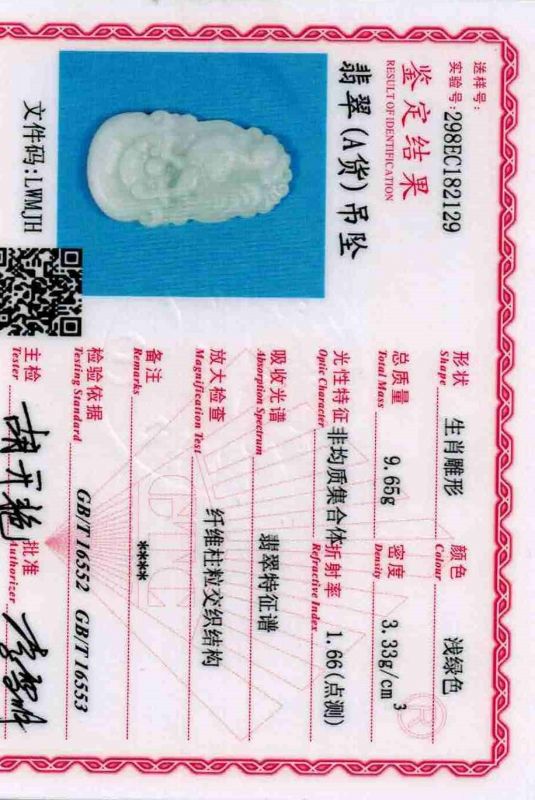 送样号:
实验号:298EC182129
鉴定结果
RESULT OF IDENTIFICATION
翡翠(A货)吊坠
文件码:LWMJH
形状 生肖雕形 颜色 浅绿色
Shape Colour
总质量 9.65g 密度 3.33g/cm³
Total Mass Density
光性特征 非均质集合体 折射率 1.66(点测)
Optic Character Refractive Index
吸收光谱 翡翠特征谱
Absorption Spectrum
放大检查 纤维柱粒交织结构
Magnification Test
备注 ****
Remarks
检验依据 GB/T 16552 GB/T 16553
Testing Standard
主检 批准
Tester Authorizer